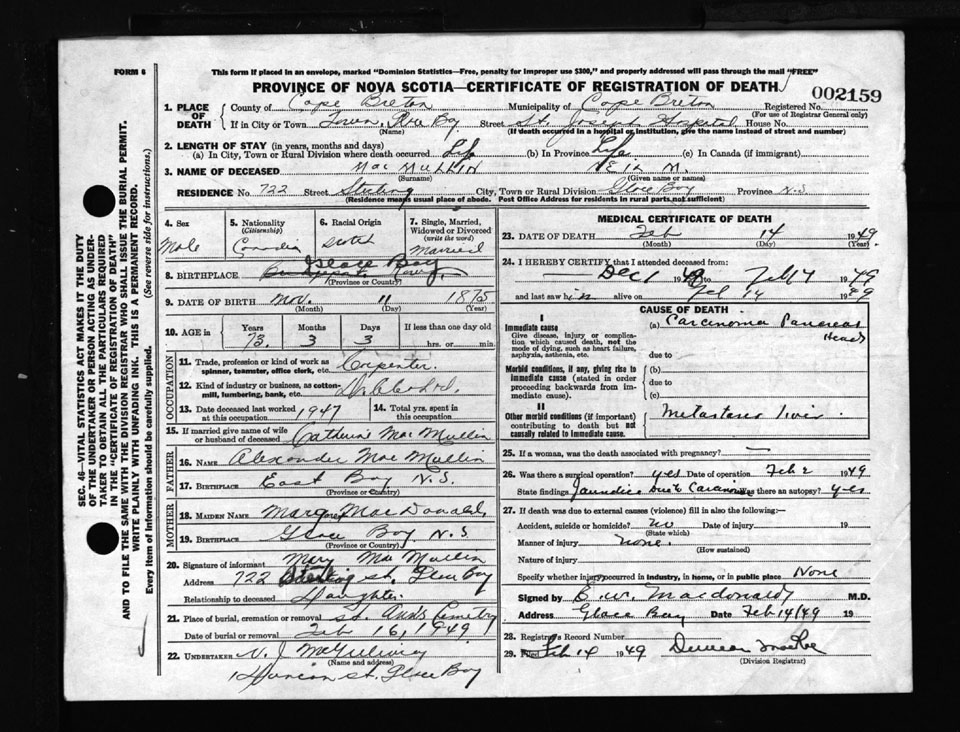 FORM 6
This form if placed in an envelope, marked "Dominion Statistics—Free, penalty for improper use $300," and properly addressed will pass through the mail "FREE"
PROVINCE OF NOVA SCOTIA—CERTIFICATE OF REGISTRATION OF DEATH
002159
1. PLACE OF DEATH
County of Cape Breton Municipality of Cape Breton Registered No.
(For use of Registrar General only)
If in City or Town Town, Glace Bay Street St. Joseph Hospital House No.
(Name) (If death occurred in a hospital or institution, give the name instead of street and number)
2. LENGTH OF STAY (in years, months and days)
(a) In City, Town or Rural Division where death occurred Life (b) In Province Life (c) In Canada (if immigrant)
3. NAME OF DECEASED MacMullin Neil M.
(Surname) (Given name or names)
RESIDENCE No. 722 Street Sterling City, Town or Rural Division Glace Bay Province N.S
(Residence means usual place of abode. Post Office Address for residents in rural parts not sufficient)
4. Sex Male
5. Nationality (Citizenship) Canadian
6. Racial Origin Scotch
7. Single, Married, Widowed or Divorced (write the word) Married
8. BIRTHPLACE Glace Bay
(Province or Country)
9. DATE OF BIRTH Nov. 11 1875
(Month) (Day) (Year)
10. AGE in Years Months Days If less than one day old
73 3 3 hrs. or min.
OCCUPATION
11. Trade, profession or kind of work as spinner, teamster, office clerk, etc. Carpenter
12. Kind of industry or business, as cotton-mill, lumbering, bank, etc.
13. Date deceased last worked at this occupation 1947 14. Total yrs. spent in this occupation
15. If married give name of wife or husband of deceased Catherine Mac Mullin
FATHER
16. NAME Alexander Mac Mullin
17. BIRTHPLACE East Bay N.S.
(Province or Country)
MOTHER
18. MAIDEN NAME Margaret MacDonald
19. BIRTHPLACE Glace Bay N.S
(Province or Country)
20. Signature of informant Mary Mac Mullin
Address 722 Sterling St. Glace Bay
Relationship to deceased Daughter
21. Place of burial, cremation or removal St. Anns Cemetry
Date of burial or removal Feb 16, 1949
22. UNDERTAKER V. J. McGillivray
(Name and address)
St. Glace Bay
MEDICAL CERTIFICATE OF DEATH
23. DATE OF DEATH Feb 14 1949
(Month) (Day) (Year)
24. I HEREBY CERTIFY that I attended deceased from:
Dec 1 1948 to Feb 14 1949
and last saw him alive on Feb 14 1949
CAUSE OF DEATH
I
Immediate cause
Give disease, injury or complication which caused death, not the mode of dying, such as heart failure, asphyxia, asthenia, etc.
(a) Carcinoma Pancreas Head
due to
Morbid conditions, if any, giving rise to immediate cause (stated in order proceeding backwards from immediate cause).
(b)
due to
(c)
II
Other morbid conditions (if important) contributing to death but not causally related to immediate cause.
Metastases liver
25. If a woman, was the death associated with pregnancy? —
26. Was there a surgical operation? yes Date of operation Feb 2 1949
State findings Jaundice Due to Carcinoma was there an autopsy? yes
27. If death was due to external causes (violence) fill in also the following:—
Accident, suicide or homicide? no Date of injury 19
(State which)
Manner of injury none.
(How sustained)
Nature of injury
Specify whether injury occurred in industry, in home, or in public place None
Signed by E.W. Macdonald M.D.
Address Glace Bay Date Feb 14/49 19
28. Registrar's Record Number
29. Filed Feb 14 1949 Duncan
(Division Registrar)
SEC. 46—VITAL STATISTICS ACT MAKES IT THE DUTY
OF THE UNDERTAKER OR PERSON ACTING AS UNDER-
TAKER TO OBTAIN ALL THE PARTICULARS REQUIRED
IN THE "CERTIFICATE OF REGISTRATION OF DEATH"
AND TO FILE THE SAME WITH THE DIVISION REGISTRAR WHO SHALL ISSUE THE BURIAL PERMIT.
WRITE PLAINLY WITH UNFADING INK. THIS IS A PERMANENT RECORD.
Every item of Information should be carefully supplied. (See reverse side for instructions.)